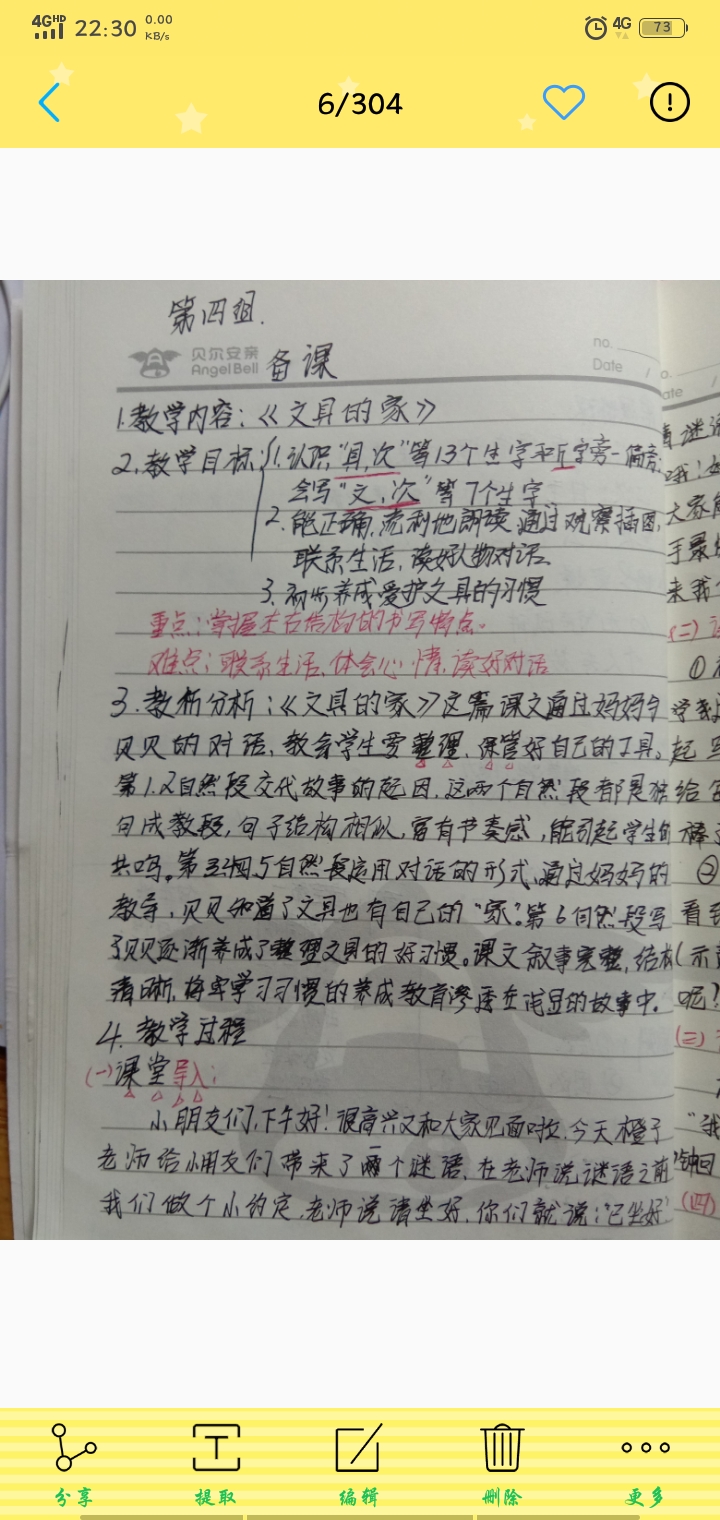 4G HD 22:30 0.00 KB/s 4G 73
6/304
第四组.
贝尔安亲
AngelBell 备课
no.
Date /
1.教学内容:《文具的家》
2.教学目标:1.认识“具,次”等13个生字和匠字旁一偏旁;
会写“文、次”等7个生字
2.能正确,流利地朗读,通过观察插图,
联系生活,读好人物对话.
3.初步养成爱护文具的习惯
重点:掌握左右结构的书写特点.
难点:联系生活,体会心情,读好对话
3.教析分析:《文具的家》这篇课文通过妈妈与
贝贝的对话,教会学生要整理,保管好自己的工具。
第1.2自然段交代故事的起因,这两个自然段都是独
句成教段,句子结构相似,富有节奏感,能引起学生的
共鸣。第3到5自然段运用对话的形式,通过妈妈的
教导,贝贝知道了文具也有自己的“家”。第6自然段写
了贝贝逐渐养成了整理文具的好习惯。课文叙事完整,结构
清晰,将学习习惯的养成教育渗透在浅显的故事中。
4.教学过程
(一)课堂导入:
小朋友们,下午好!很高兴又和大家见面啦,今天橙子
老师给小朋友们带来了两个谜语,在老师说谜语之前
我们做个小约定,老师说请坐好,你们就说:“已坐好
大家
来我
(二)
①
②
看到
(示
呢?
(三)
“我
(四)
分享 提取 编辑 删除 更多